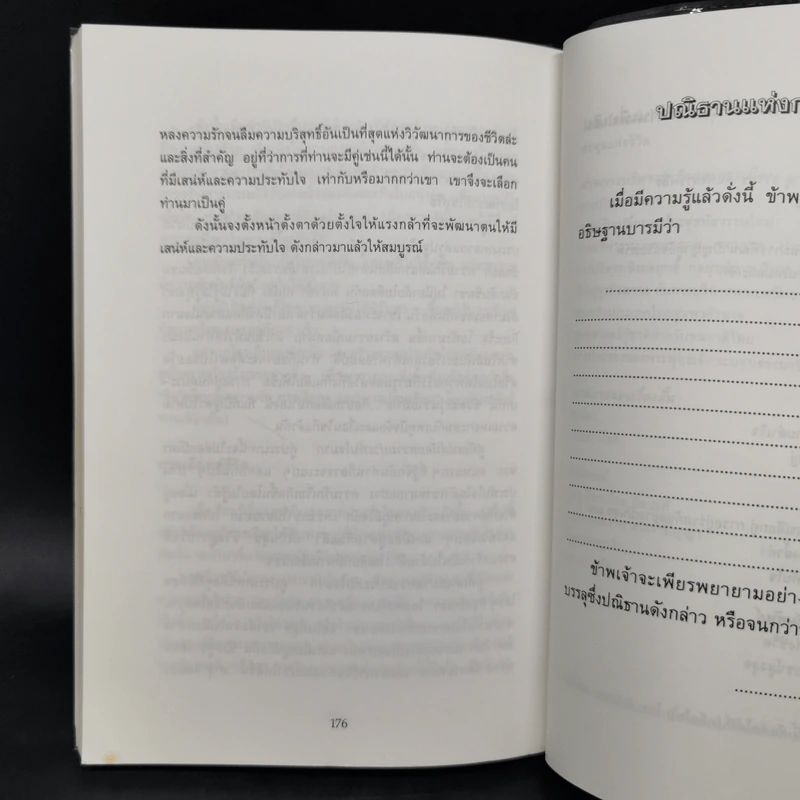 หลงความรักจนลืมความบริสุทธิ์อันเป็นที่สุดแห่งวิวัฒนาการของชีวิตล่ะ
และสิ่งที่สำคัญ อยู่ที่ว่าการที่ท่านจะมีคู่เช่นนี้ได้นั้น ท่านจะต้องเป็นคน
ที่มีเสน่ห์และความประทับใจ เท่ากับหรือมากกว่าเขา เขาจึงจะเลือก
ท่านมาเป็นคู่
ดังนั้นจงตั้งหน้าตั้งตาด้วยตั้งใจให้แรงกล้าที่จะพัฒนาตนให้มี
เสน่ห์และความประทับใจ ดังกล่าวมาแล้วให้สมบูรณ์
176
ปณิธานแห่งก
เมื่อมีความรู้แล้วดั่งนี้ ข้าพ
อธิษฐานบารมีว่า
ข้าพเจ้าจะเพียรพยายามอย่าง
บรรลุซึ่งปณิธานดังกล่าว หรือจนกว่า